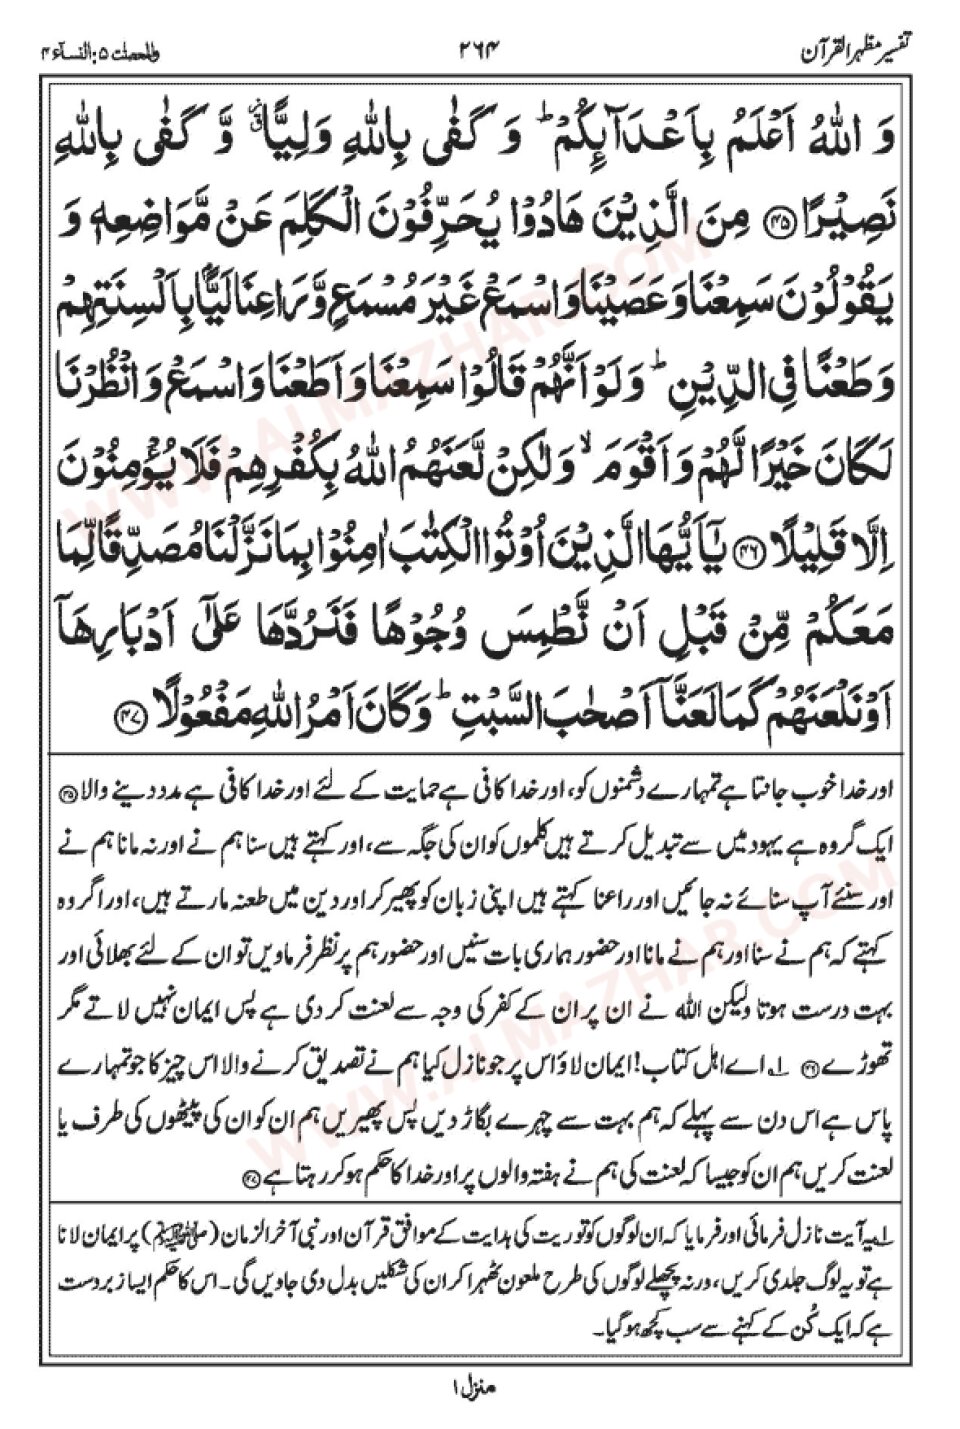 تفسیر مظہر القرآن ۲۶۴ والمحصنٰت ۵: النسآء ۴
وَ اللّٰهُ اَعْلَمُ بِاَعْدَآىِٕكُمْ ؕ وَ كَفٰى بِاللّٰهِ وَلِیًّا ۗۙ وَّ كَفٰى بِاللّٰهِ
نَصِیْرًا ﴿۴۵﴾ مِنَ الَّذِیْنَ هَادُوْا یُحَرِّفُوْنَ الْكَلِمَ عَنْ مَّوَاضِعِهٖ وَ
یَقُوْلُوْنَ سَمِعْنَا وَ عَصَیْنَا وَ اسْمَعْ غَیْرَ مُسْمَعٍ وَّ رَاعِنَا لَیًّۢا بِاَلْسِنَتِهِمْ
وَ طَعْنًا فِی الدِّیْنِ ؕ وَ لَوْ اَنَّهُمْ قَالُوْا سَمِعْنَا وَ اَطَعْنَا وَ اسْمَعْ وَ انْظُرْنَا
لَكَانَ خَیْرًا لَّهُمْ وَ اَقْوَمَ ۙ وَ لٰكِنْ لَّعَنَهُمُ اللّٰهُ بِكُفْرِهِمْ فَلَا یُؤْمِنُوْنَ
اِلَّا قَلِیْلًا ﴿۴۶﴾ یٰۤاَیُّهَا الَّذِیْنَ اُوْتُوا الْكِتٰبَ اٰمِنُوْا بِمَا نَزَّلْنَا مُصَدِّقًا لِّمَا
مَعَكُمْ مِّنْ قَبْلِ اَنْ نَّطْمِسَ وُجُوْهًا فَنَرُدَّهَا عَلٰۤى اَدْبَارِهَاۤ
اَوْ نَلْعَنَهُمْ كَمَا لَعَنَّاۤ اَصْحٰبَ السَّبْتِ ؕ وَ كَانَ اَمْرُ اللّٰهِ مَفْعُوْلًا ﴿۴۷﴾
اور خدا خوب جانتا ہے تمہارے دشمنوں کو، اور خدا کافی ہے حمایت کے لئے اور خدا کافی ہے مدد دینے والا ﴿۴۵﴾
ایک گروہ ہے یہود میں سے تبدیل کرتے ہیں کلموں کو ان کی جگہ سے، اور کہتے ہیں سنا ہم نے اور نہ مانا ہم نے
اور سنئے آپ سنائے نہ جائیں اور راعنا کہتے ہیں اپنی زبان کو پھیر کر اور دین میں طعنہ مارتے ہیں، اور اگر وہ
کہتے کہ ہم نے سنا اور ہم نے مانا اور حضور ہماری بات سنیں اور حضور ہم پر نظر فرماویں تو ان کے لئے بھلائی اور
بہت درست ہوتا ولیکن اللہ نے ان پر ان کے کفر کی وجہ سے لعنت کر دی ہے پس ایمان نہیں لاتے مگر
تھوڑے ﴿۴۶﴾ ۱؎ اے اھل کتاب! ایمان لاؤ اس پر جو نازل کیا ہم نے تصدیق کرنے والا اس چیز کا جو تمہارے
پاس ہے اس دن سے پہلے کہ ہم بہت سے چہرے بگاڑ دیں پس پھیریں ہم ان کو ان کی پیٹھوں کی طرف یا
لعنت کریں ہم ان کو جیسا کہ لعنت کی ہم نے ہفتہ والوں پر اور خدا کا حکم ہو کر رہتا ہے ﴿۴۷﴾
۱؎ یہ آیت نازل فرمائی اور فرمایا کہ ان لوگوں کو توریت کی ہدایت کے موافق قرآن اور نبی آخر الزمان (ﷺ) پر ایمان لانا
ہے تو یہ لوگ جلدی کریں، ورنہ پچھلے لوگوں کی طرح ملعون ٹھہرا کر ان کی شکلیں بدل دی جاویں گی۔ اس کا حکم ایسا زبردست
ہے کہ ایک کُن کے کہنے سے سب کچھ ہو گیا۔
منزل ۱
WWW.ALMAZHAR.COM
WWW.ALMAZHAR.COM